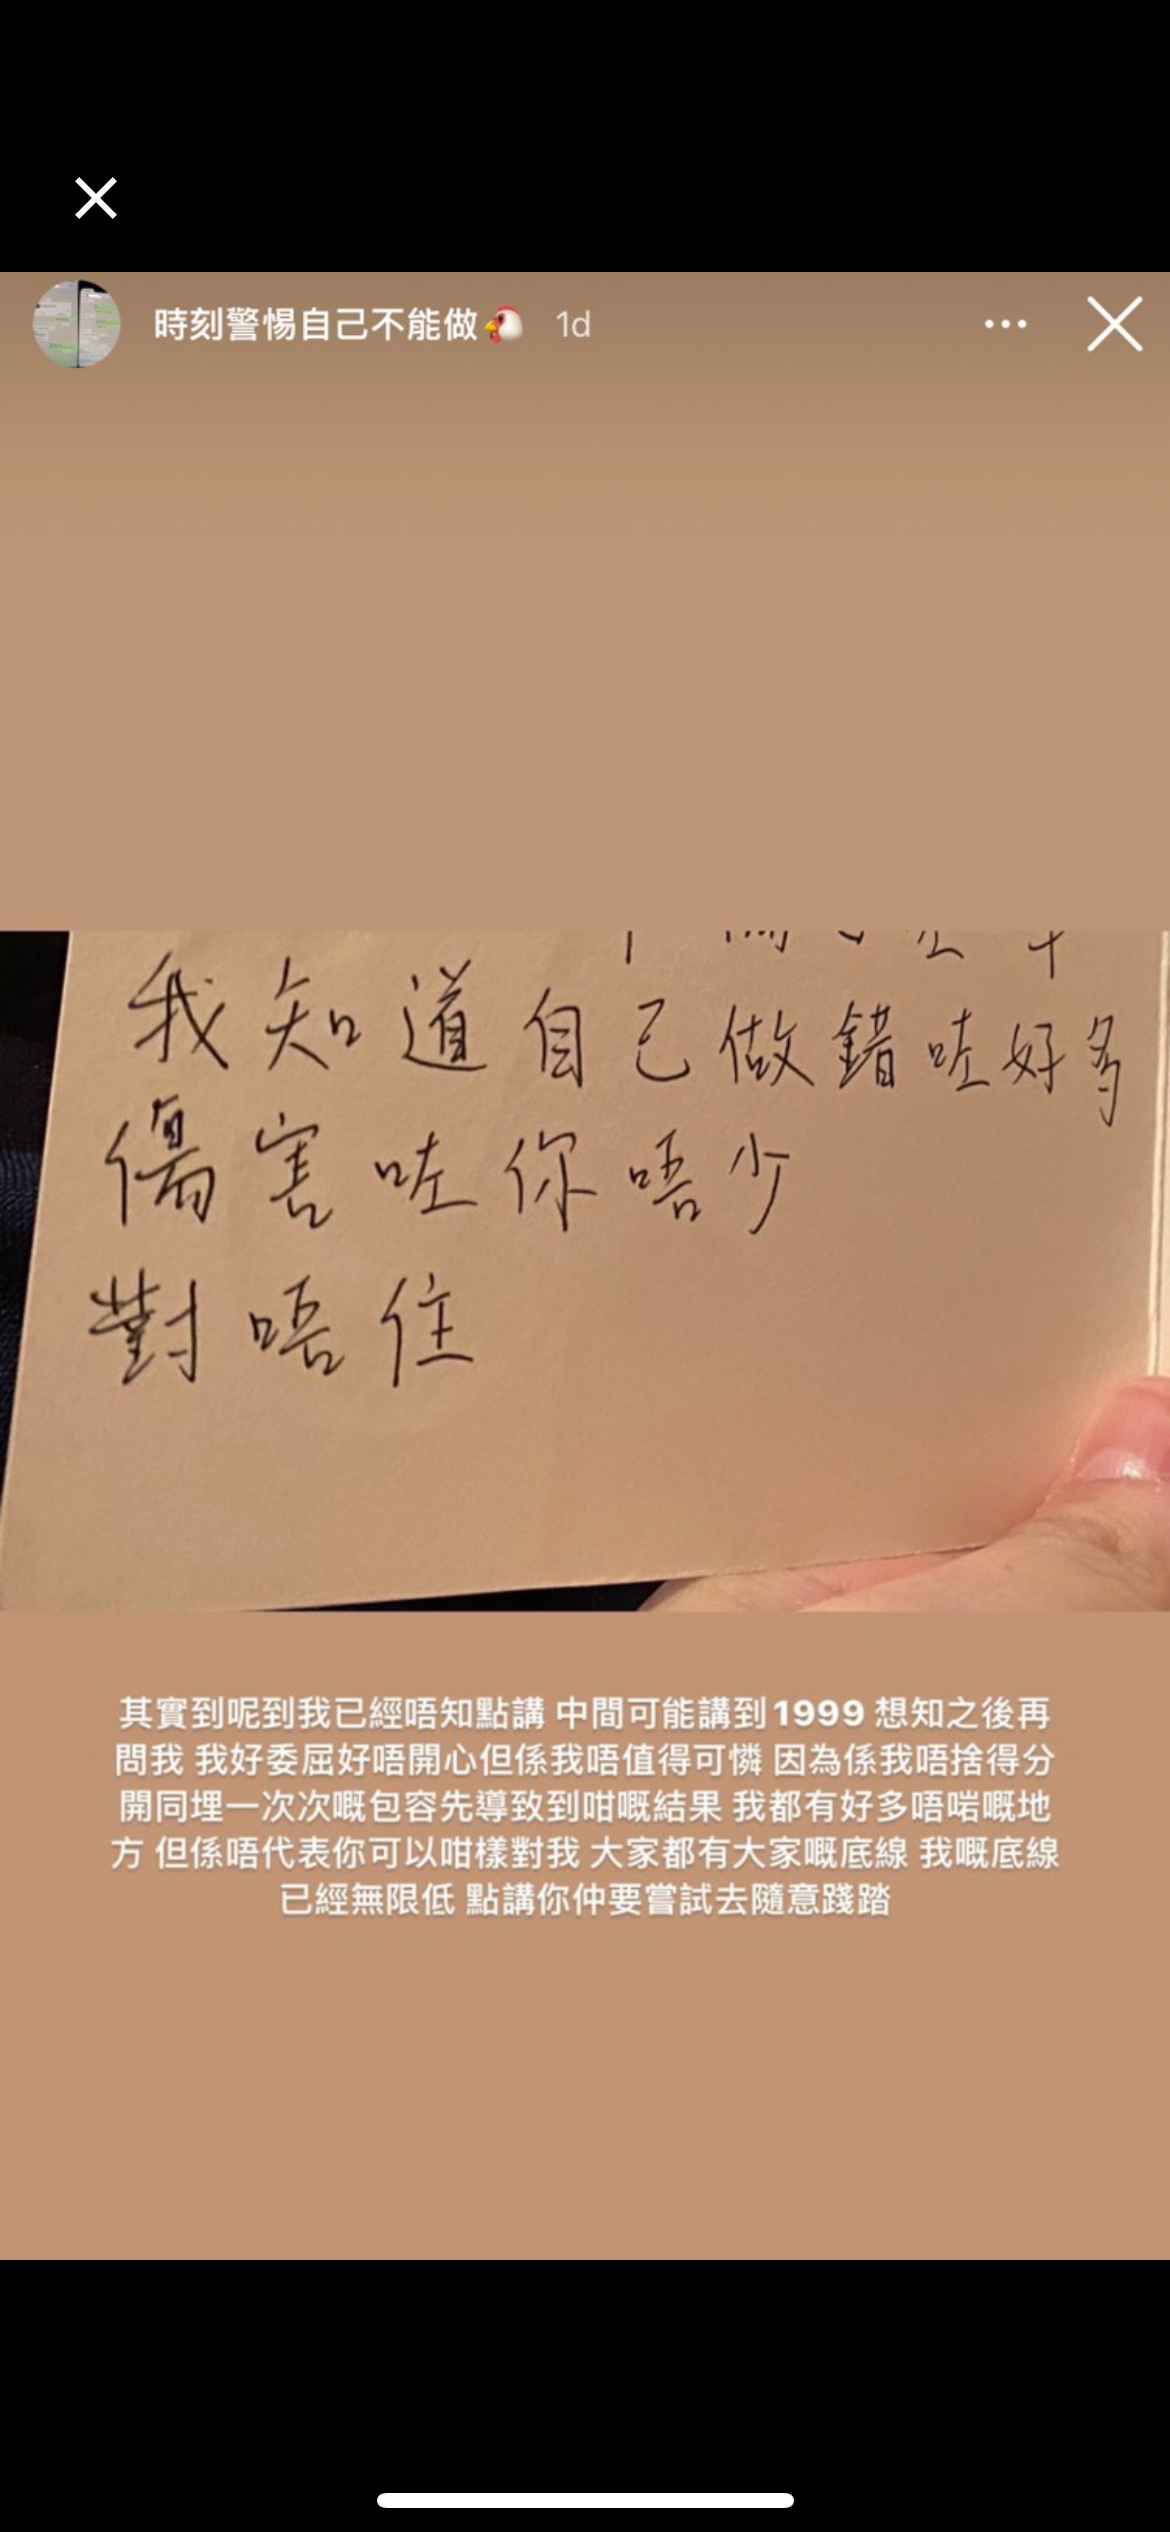 時刻警惕自己不能做🐔 1d
我知道自己做錯咗好多
傷害咗你唔少
對唔住
其實到呢到我已經唔知點講 中間可能講到1999 想知之後再
問我 我好委屈好唔開心但係我唔值得可憐 因為係我唔捨得分
開同埋一次次嘅包容先導致到咁嘅結果 我都有好多唔啱嘅地
方 但係唔代表你可以咁樣對我 大家都有大家嘅底線 我嘅底線
已經無限低 點講你仲要嘗試去隨意踐踏